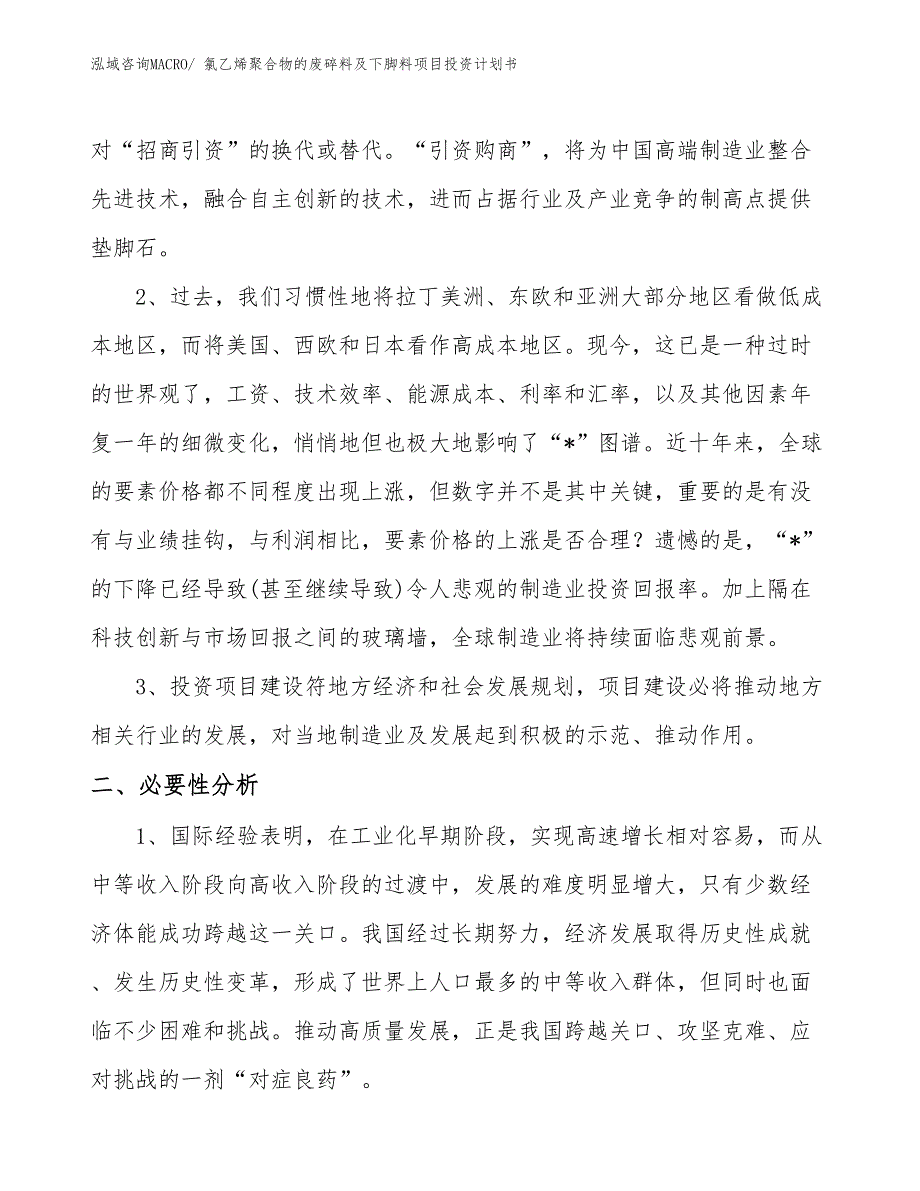 泓域咨询MACRO/ 氯乙烯聚合物的废碎料及下脚料项目投资计划书
对“招商引资”的换代或替代。“引资购商”，将为中国高端制造业整合
先进技术，融合自主创新的技术，进而占据行业及产业竞争的制高点提供
垫脚石。
2、过去，我们习惯性地将拉丁美洲、东欧和亚洲大部分地区看做低成
本地区，而将美国、西欧和日本看作高成本地区。现今，这已是一种过时
的世界观了，工资、技术效率、能源成本、利率和汇率，以及其他因素年
复一年的细微变化，悄悄地但也极大地影响了“*”图谱。近十年来，全球
的要素价格都不同程度出现上涨，但数字并不是其中关键，重要的是有没
有与业绩挂钩，与利润相比，要素价格的上涨是否合理？遗憾的是，“*”
的下降已经导致(甚至继续导致)令人悲观的制造业投资回报率。加上隔在
科技创新与市场回报之间的玻璃墙，全球制造业将持续面临悲观前景。
3、投资项目建设符地方经济和社会发展规划，项目建设必将推动地方
相关行业的发展，对当地制造业及发展起到积极的示范、推动作用。
二、必要性分析
1、国际经验表明，在工业化早期阶段，实现高速增长相对容易，而从
中等收入阶段向高收入阶段的过渡中，发展的难度明显增大，只有少数经
济体能成功跨越这一关口。我国经过长期努力，经济发展取得历史性成就
、发生历史性变革，形成了世界上人口最多的中等收入群体，但同时也面
临不少困难和挑战。推动高质量发展，正是我国跨越关口、攻坚克难、应
对挑战的一剂“对症良药”。